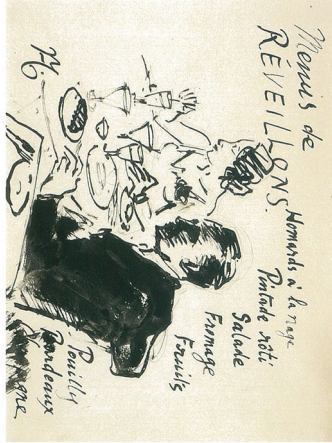 Menus de
RÉVEILLONS.
Homards à la nage
Pintade rôti
Salade
Fromage
Fruits
Pouilly
Bordeaux